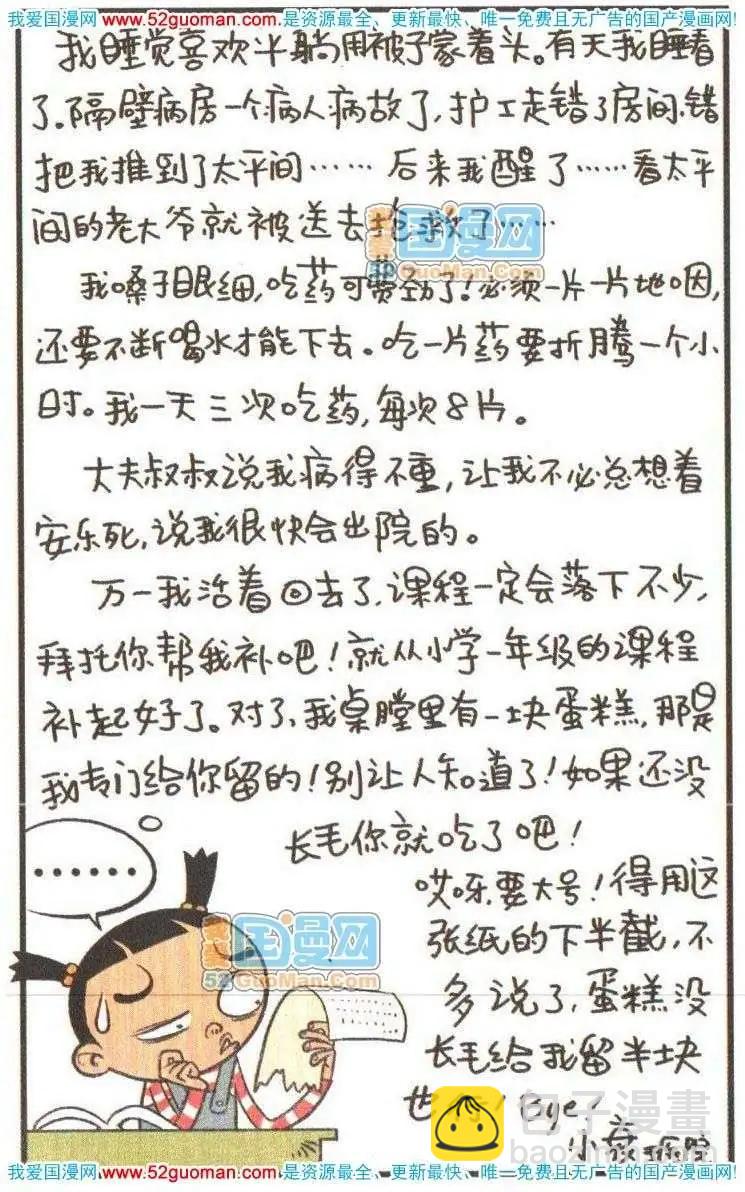 我爱国漫网 www.52guoman.com 是资源最全、更新最快、唯一免费且无广告的国产漫画网!
我睡觉喜欢平躺用被子蒙着头。有天我睡着
了.隔壁病房一个病人病故了,护工走错了房间,错
把我推到了太平间…… 后来我醒了……看太平
间的老大爷就被送去抢救了……
国漫网
52GuoMan.Com
我嗓子眼细,吃药可费劲了!必须一片一片地咽,
还要不断喝水才能下去。吃一片药要折腾一个小
时。我一天三次吃药,每次8片。
大夫叔叔说我病得不重,让我不必总想着
安乐死,说我很快会出院的。
万一我活着回去了,课程一定会落下不少,
拜托你帮我补吧!就从小学一年级的课程
补起好了。对了,我桌膛里有一块蛋糕,那是
我专门给你留的!别让人知道了!如果还没
长毛你就吃了吧!
……
哎呀,要大号!得用这
张纸的下半截,不
多说了,蛋糕没
长毛给我留半块
国漫网
52GuoMan.Com
Bye
包子漫畫
baozimh.com
我爱国漫网 www.52guoman.com 是资源最全、更新最快、唯一免费且无广告的国产漫画网!